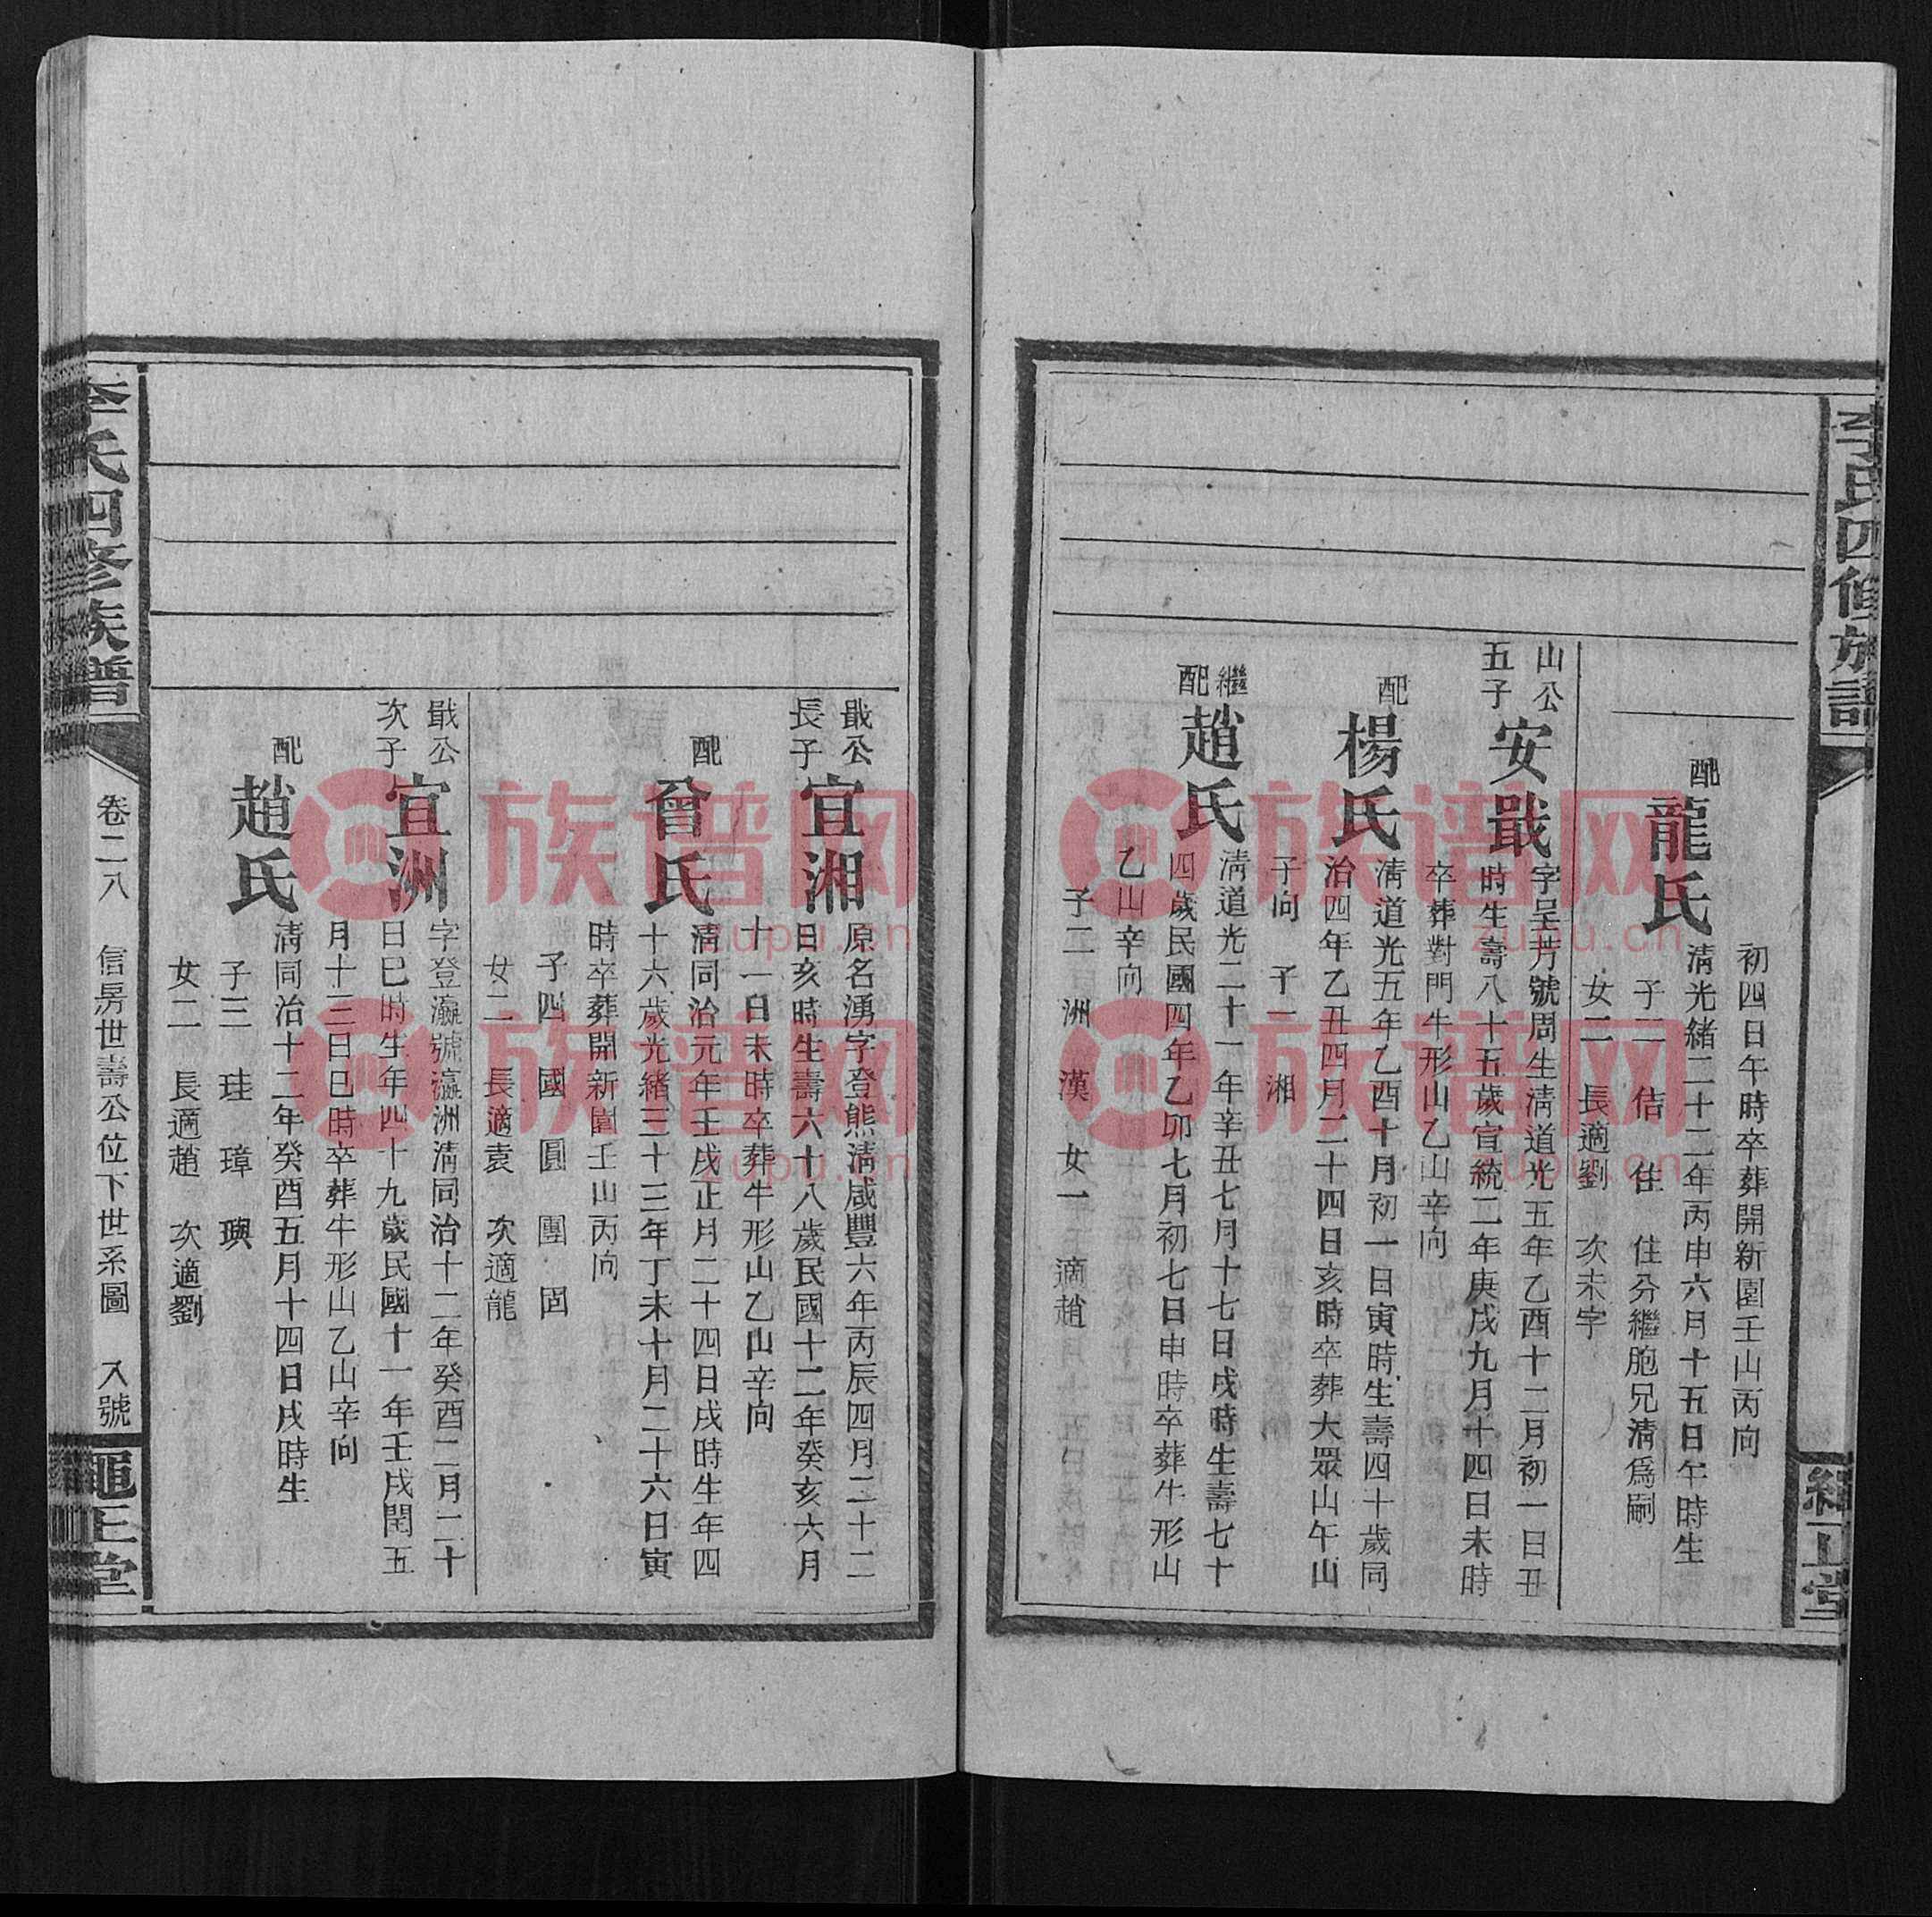 李氏四修族譜
初四日午時卒葬開新園壬山丙向
配
龍氏
清光緒二十二年丙申六月十五日午時生
子二 佶 住 住分繼胞兄清爲嗣
女二 長適劉 次未字
山公
五子
安戢
字呈芳號周生清道光五年乙酉十二月初一日丑
時生壽八十五歲宣統二年庚戌九月十四日未時
卒葬對門牛形山乙山辛向
配
楊氏
清道光五年乙酉十月初一日寅時生壽四十歲同
治四年乙丑四月二十四日亥時卒葬大眾山午山
子向 子一 湘
繼
配
趙氏
清道光二十一年辛丑七月十七日戌時生壽七十
四歲民國四年乙卯七月初七日申時卒葬牛形山
乙山辛向
子二 洲 漢 女一 適趙
戢公
長子
宜湘
原名湧字登熊清咸豐六年丙辰四月二十二
日亥時生壽六十八歲民國十二年癸亥六月
十一日未時卒葬牛形山乙山辛向
配
曾氏
清同治元年壬戌正月二十四日戌時生年四
十六歲光緒三十三年丁未十月二十六日寅
時卒葬開新園壬山丙向
子四 國 圓 團 固
女二 長適袁 次適龍
戢公
次子
宜洲
字登瀛號瀛洲清同治十二年癸酉二月二十
日巳時生年四十九歲民國十一年壬戌閏五
月十三日巳時卒葬牛形山乙山辛向
配
趙氏
清同治十二年癸酉五月十四日戌時生
子三 珪 璋 璵
女二 長適趙 次適劉
李氏四修族譜
卷二八 信房世壽公位下世系圖 入號
族谱网
zupu.cn
族谱网
zupu.cn
族谱网
zupu.cn
族谱网
zupu.cn